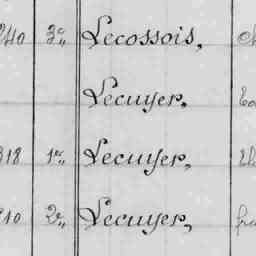 240 3e Lecossois,
Lecuyer,
318 1er Lecuyer,
210 2e Lecuyer,